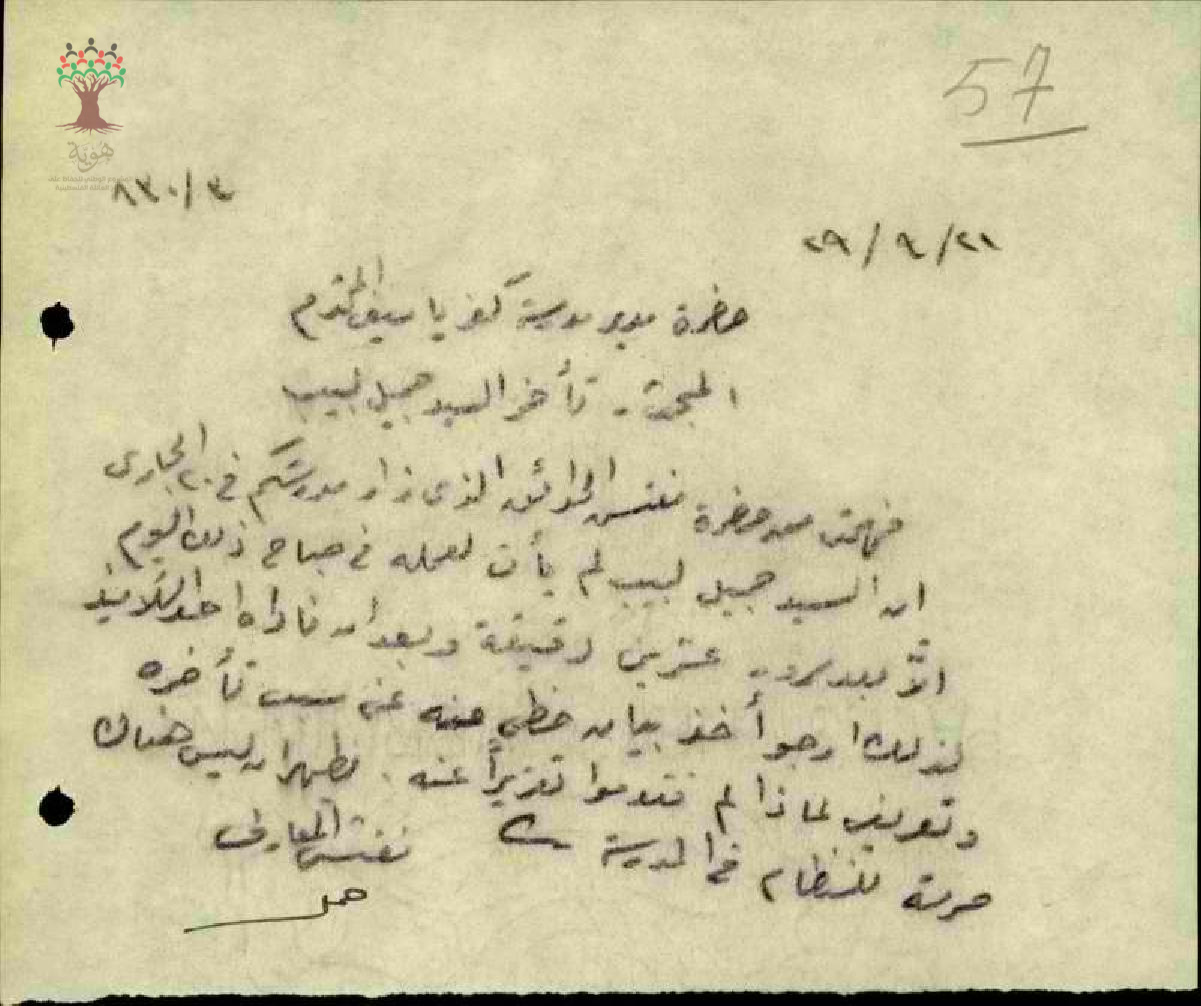 57
هوية
٨٣٠/٣
٢٩/٩/٢١
حضرة مدير مدرسة كفر ياسيف المحترم
المبحث - تأخر السيد جميل لبيب
فهمت من حضرة مفتش اللوائ الذى زار مدرستكم في ٢٠ الجارى
ان السيد جميل لبيب لم يأت لعمله في صباح ذلك اليوم
الا بعد مرور عشرين دقيقة وبعد ان ناداه احد التلاميذ
لذلك ارجو أخذ بيان خطي منه عن سبب تأخره
وتعريفي لماذا لم تقدموا تقريراً عنه . يظهر ان ليس هناك
حرمة للنظام في المدرسة
مفتش المعارف